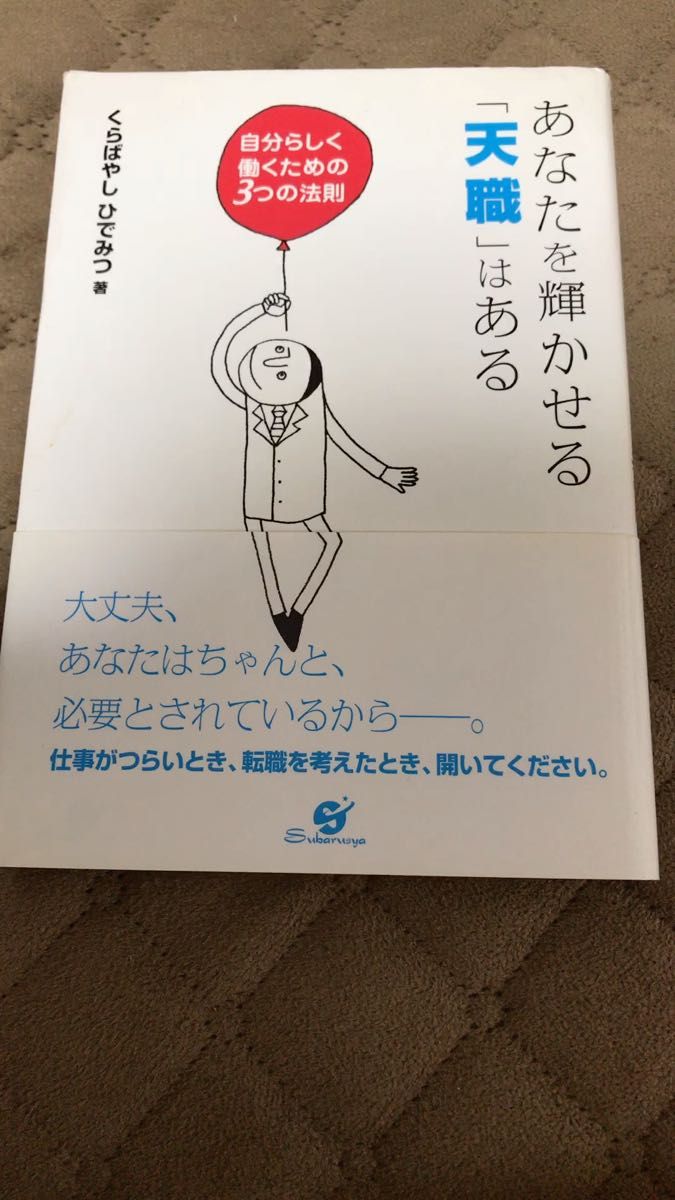 あなたを輝かせる
「天職」はある
自分らしく
働くための
3つの法則
くらばやし ひでみつ 著
大丈夫、
あなたはちゃんと、
必要とされているから――。
仕事がつらいとき、転職を考えたとき、開いてください。
Subarusya